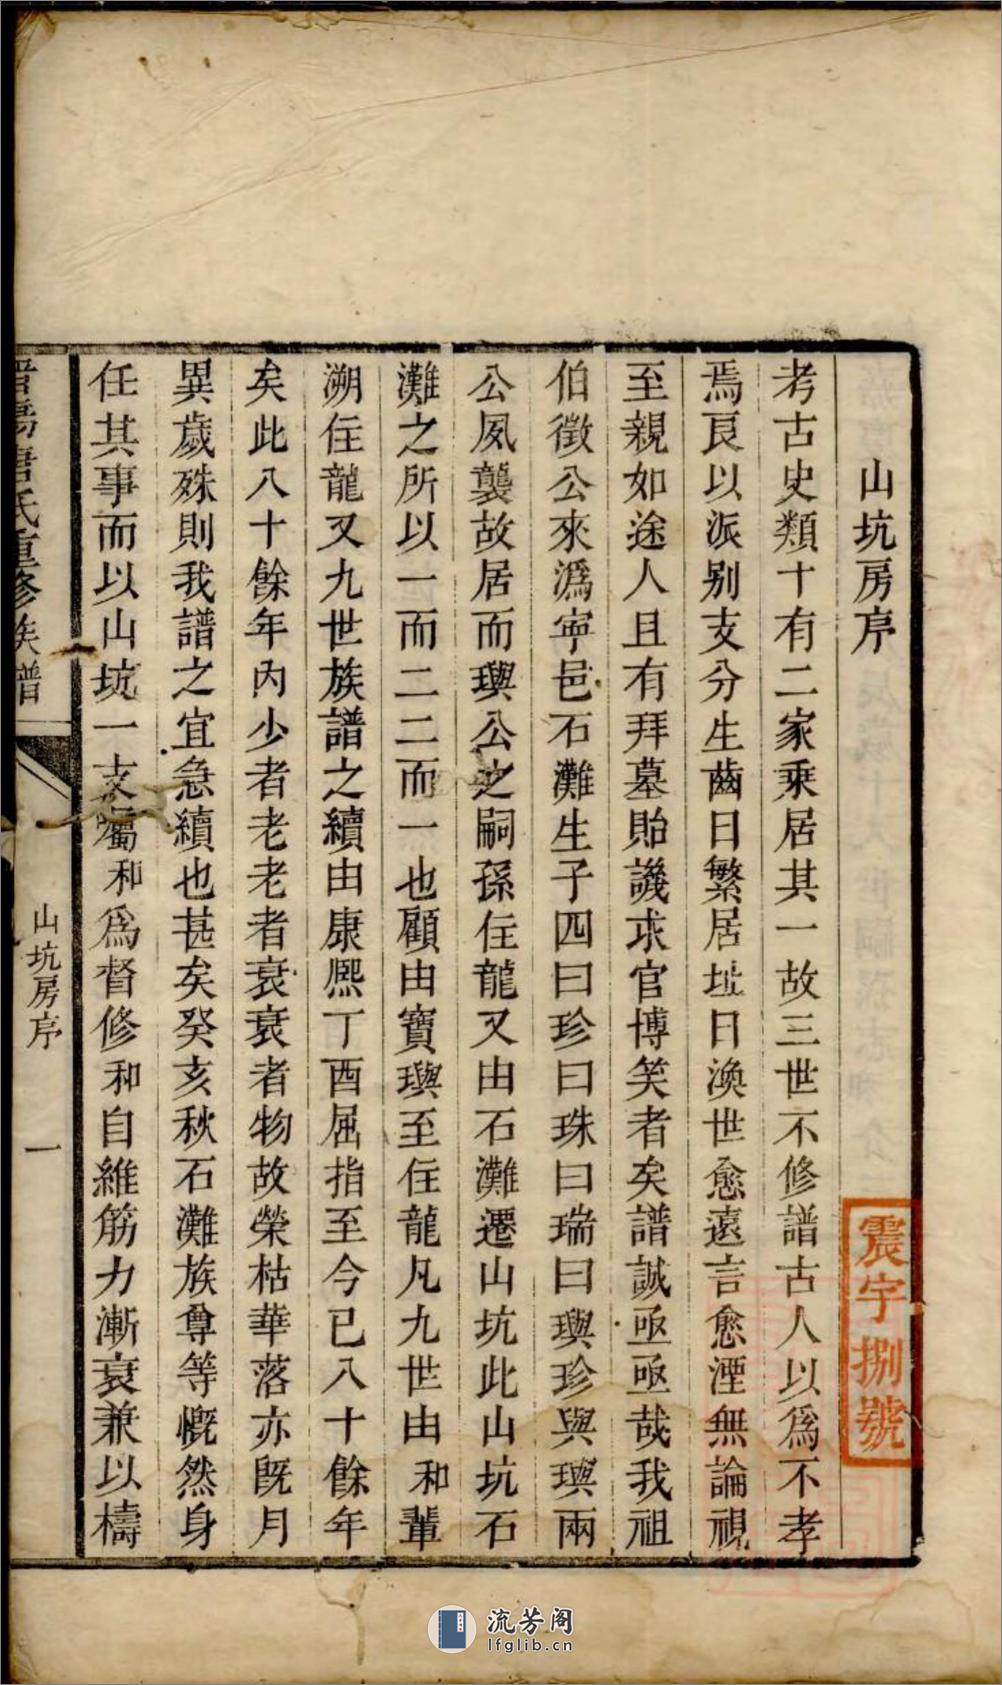 山坑房序
考古史類十有二家乘居其一故三世不修譜古人以爲不孝
焉良以派别支分生齒日繁居址日渙世愈遠言愈湮無論視
至親如途人且有拜墓貽譏求官博笑者矣譜誠亟亟哉我祖
伯徵公來潙寧邑石灘生子四曰珍曰珠曰瑞曰璵珍與璵兩
公夙襲故居而璵公之嗣孫住龍又由石灘遷山坑此山坑石
灘之所以一而二二而一也顧由寶璵至住龍凡九世由和輩
溯住龍又九世族譜之續由康熙丁酉屈指至今已八十餘年
矣此八十餘年內少者老老者衰衰者物故榮枯華落亦既月
異歲殊則我譜之宜急續也甚矣癸亥秋石灘族尊等慨然身
任其事而以山坑一支屬和爲督修和自維筋力漸衰兼以檮
唐氏重修族譜
山坑房序
一
震宇捌號
流芳阁
lfglib.cn